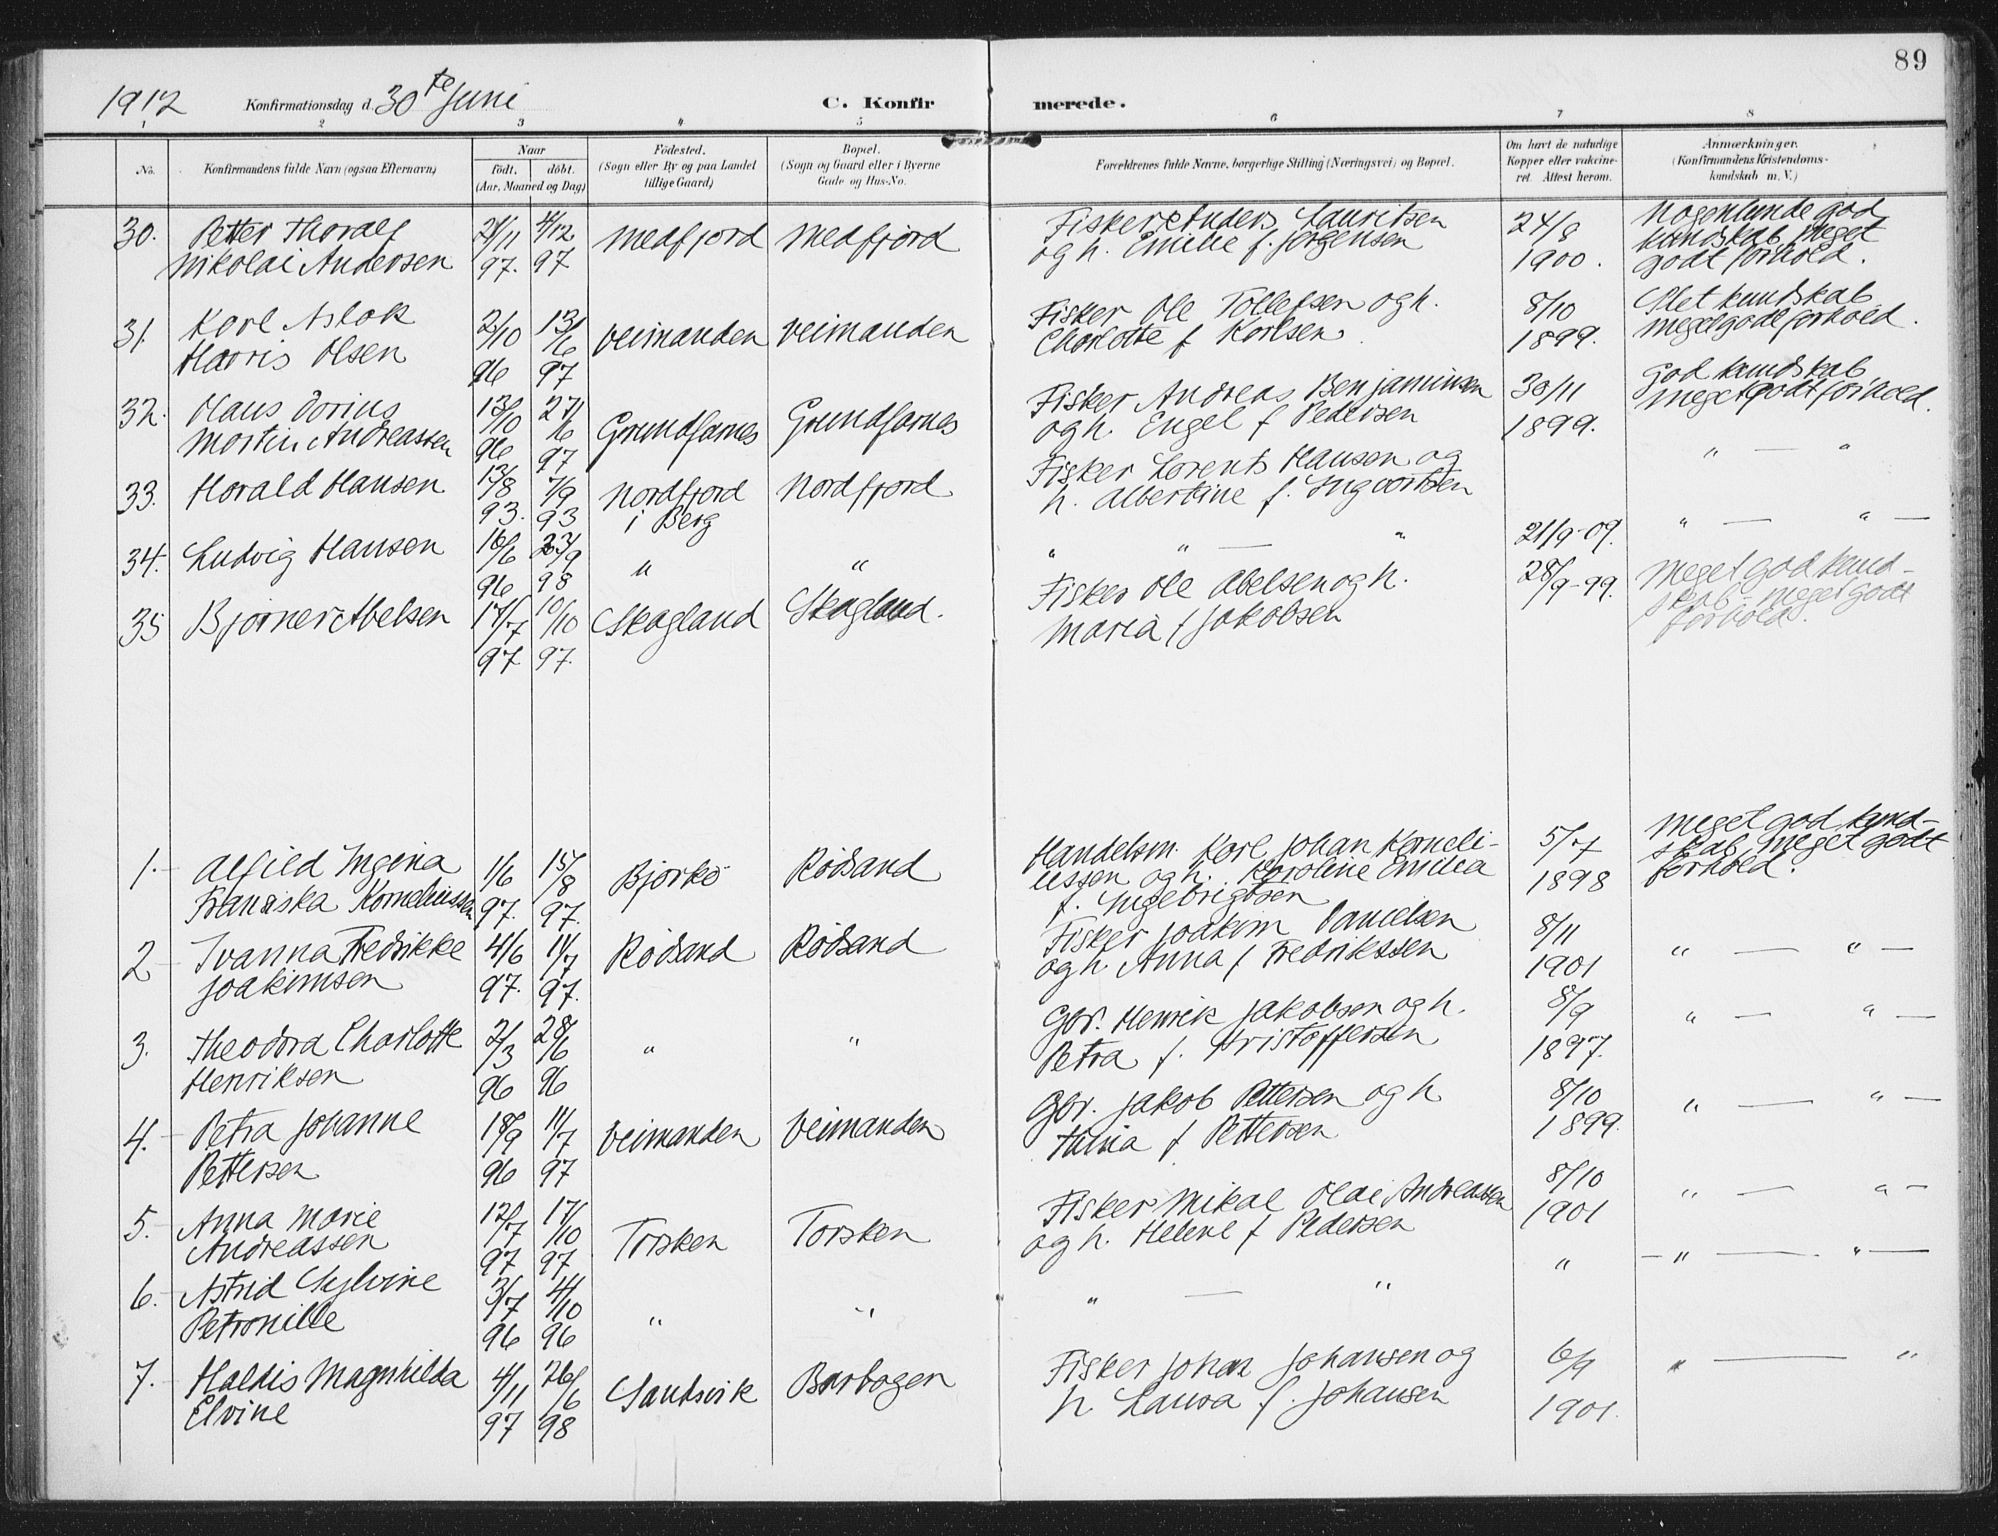 89
1912 Konfirmationsdag d. 30te Juni C. Konfir merede.
1 2 3 4 5 6 7 8
No. Konfirmandens fulde Navn (ogsaa Efternavn) Naar født, døbt. (Aar, Maaned og Dag) Fødested. (Sogn eller By og paa Landet tillige Gaard) Bopæl. (Sogn og Gaard eller i Byerne Gade og Hus-No. Forældrenes fulde Navne, borgerlige Stilling (Næringsvei) og Bopæl. Om havt de naturlige Kopper eller vaccineret. Attest herom. Anmærkninger. (Konfirmandens Kristendomskundskab m. V.)
30. Petter Thoralf 21/11 4/12 Medfjord Medfjord Fisker Anders Lauritsen 24/8 Nogenlunde god
Nikolai Andersen 97. 97 og h. Emilie f. Jørgensen 1900. kundskab, meget
godt forhold.
31. Karl Aslak 2/10 13/6 Veimanden Veimanden Fisker Ole Tollefsen og h. 8/10 Slet kundskab
Harris Olsen 96 97 Charlotte f Karlsen 1899. meget godt forhold.
32. Hans Dorius 13/10 27/6 Grundfarnes Grundfarnes Fisker Andreas Benjaminsen 30/11 God kundskab
Martin Andreassen 96 97 og h. Engel f Pedersen 1899. meget godt forhold.
33. Harald Hansen 13/8 7/9 Nordfjord Nordfjord Fisker Lorents Hansen og " — "
93. 93 i Berg h. Albertine f. Ingvartsen
34. Ludvig Hansen 16/6 23/9 " " " " — " 21/9-09. " — " —
96 98
35 Bjarner Abelsen 17/7 10/10 Skagland Skagland. Fisker Ole Abelsen og h. 28/9-99. Meget god kund-
97 97. Maria f Jakobsen skab - meget godt
forhold.
1. Alfild Ingina 1/6 15/8 Bjørkø Rødsand Handelsm. Karl Johan Korneli- 5/7 Meget god kund-
Franziska Korneliussen 97. 97. ussen og h. Karoline Emilia 1898 skab, meget godt
f. Ingebrigtsen forhold.
2 Ivanna Fredrikke 4/6 11/7 Rødsand Rødsand Fisker Joakim Danielsen 8/11 " — " —
Joakimsen 97. 97. og h. Anna f Fredrikssen 1901
3. Theodora Charlotte 2/3 28/6 " " Gbr. Henrik Jakobsen og h. 8/9 " — " —
Henriksen 96 96 Petra f. Kristoffersen 1897.
4. Petra Johanne 18/9 11/7 Veimanden Veimanden Gbr. Jakob Pettersen og h 8/10 " — " —
Pettersen 96 97 f Pettersen 1899.
5. Anna Marie 12/7 17/10 Torsken Torsken Fisker Mikal Olai Andreassen 8/10 " — " —
Andreassen 97 97 og h. Helene f Pedersen 1901
6. Astrid Sylvine 3/7 4/10 " " " — " " — " — " —
Petronille 96 96
7. Haldis Magnhilda 4/11 26/6 Sandsvik Barbogen Fisker Johan Johansen og 6/9 " — "
Elvine 97 98 h Laura f. Johansen 1901.